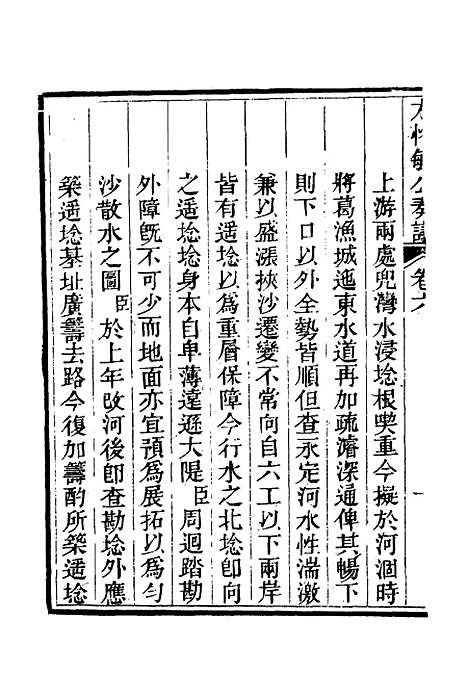 方恪敏公奏議 卷六 一
上游兩處兜灣水浸埝根喫重今擬於河涸時
將葛漁城迤東水道再加疏濬深通俾其暢下
則下口以外全勢皆順但查永定河水性湍激
兼以盛漲挾沙遷變不常向自六工以下兩岸
皆有遥埝以爲重層保障今行水之北埝卽向
之遥埝埝身本自卑薄遠遜大隄臣周迴踏勘
外障旣不可少而地面亦宜預爲展拓以爲勻
沙散水之圖臣於上年改河後卽查勘埝外應
築遥埝基址廣籌去路今復加籌酌所築遥埝